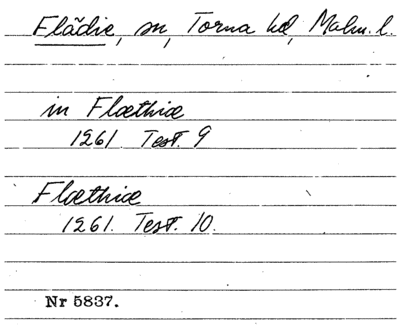 Flädie, sn, Torna hd, Malm. l.
in Flæthiæ
1261 Test. 9
Flæthiæ
1261. Test. 10.
Nr 5837.